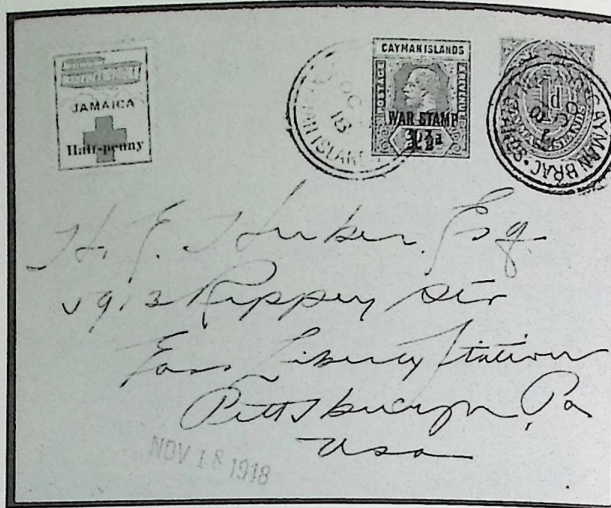 JAMAICA
Half-penny
CAYMAN ISLANDS
POSTAGE
REVENUE
WAR STAMP
1½d
1d
CAYMAN BRAC
OC
18
ISLAN
H. E. Huber, Esq.
5913 Rippey Str
East Liberty Station
Pittsburgh, Pa
USA
NOV 18 1918